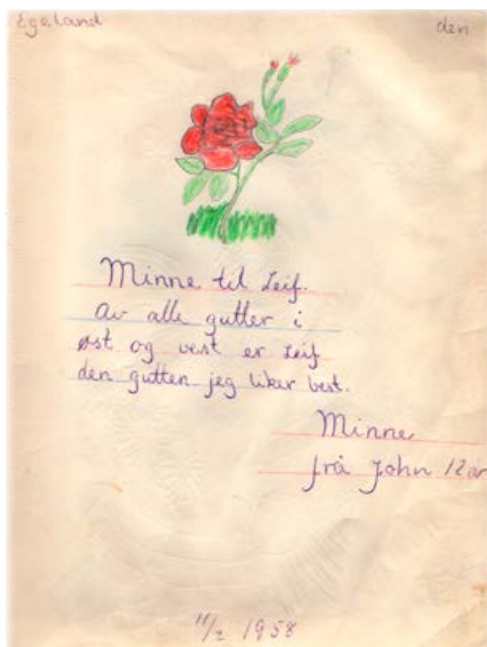 Egeland den
Minne til Leif.
Av alle gutter i
øst og vest er Leif
den gutten jeg liker best.
Minne
frå John 12 år
11/2 1958